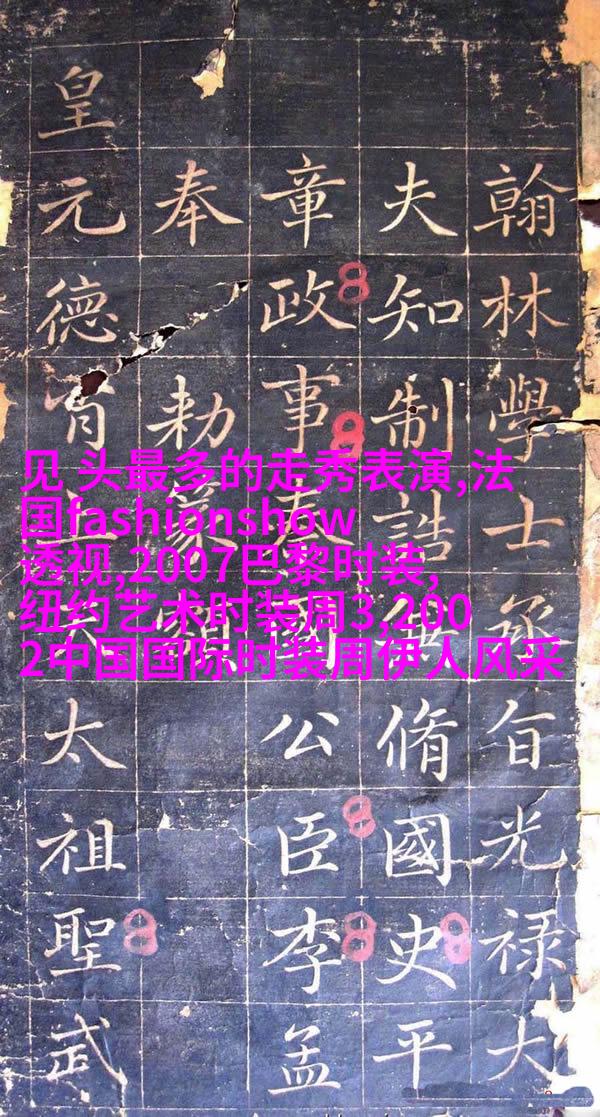 见 头最多的走秀表演,法
国fashionshow
透视,2007巴黎时装,
纽约艺术时装周3,200
2中国国际时装周伊人风采
翰林學士承旨光禄大
夫知制誥兼脩國史平
章政事秦國公臣李孟
奉勑篆額
皇元德上太祖聖武